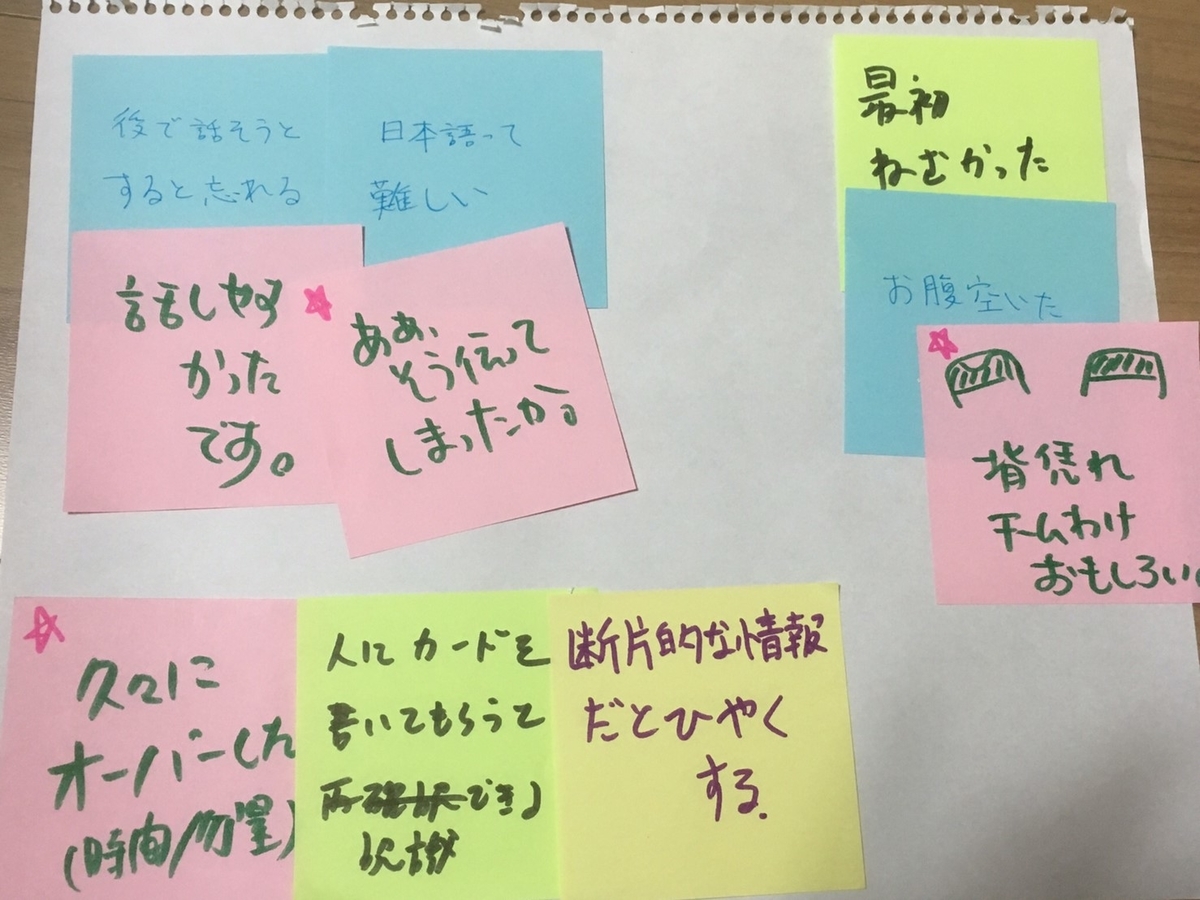 後で話そうと
すると忘れる
日本語って
難しい
話しやす
かった
です。
ああ、
そう伝って
しまったか。
最初
ねむかった
お腹空いた
背凭れ
チームわけ
おもしろい。
久々に
オーバーした
(時間/物量)
人にカードを
書いてもらうて
できる
認識
断片的な情報
だとひやく
する.